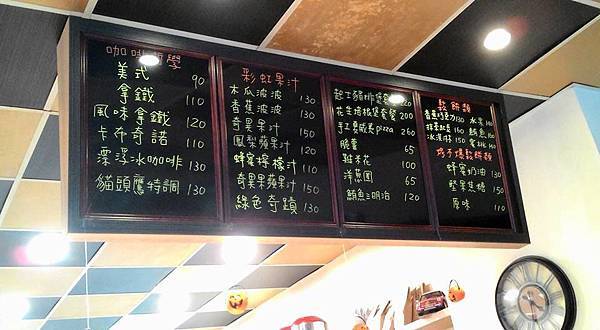 咖啡哲學
美式 90
拿鐵 110
風味拿鐵 120
卡布奇諾 110
漂浮冰咖啡 130
貓頭鷹特調 130
彩虹果汁
木瓜波波 130
香蕉波波 130
奇異果汁 150
鳳梨蘋果汁 120
蜂蜜檸檬汁 110
奇異果蘋果汁 150
綠色奇蹟 130
起士豬排堡套餐 200
花生培根堡套餐 200
手工臘味pizza 260
脆薯 65
雞米花 100
洋蔥圈 65
鮪魚三明治 120
鬆餅類
香蕉巧克力 130
冰淇淋 160
鮪魚 160
格子爆鬆餅類
蜂蜜奶油 130
堅果焦糖 150
原味 110